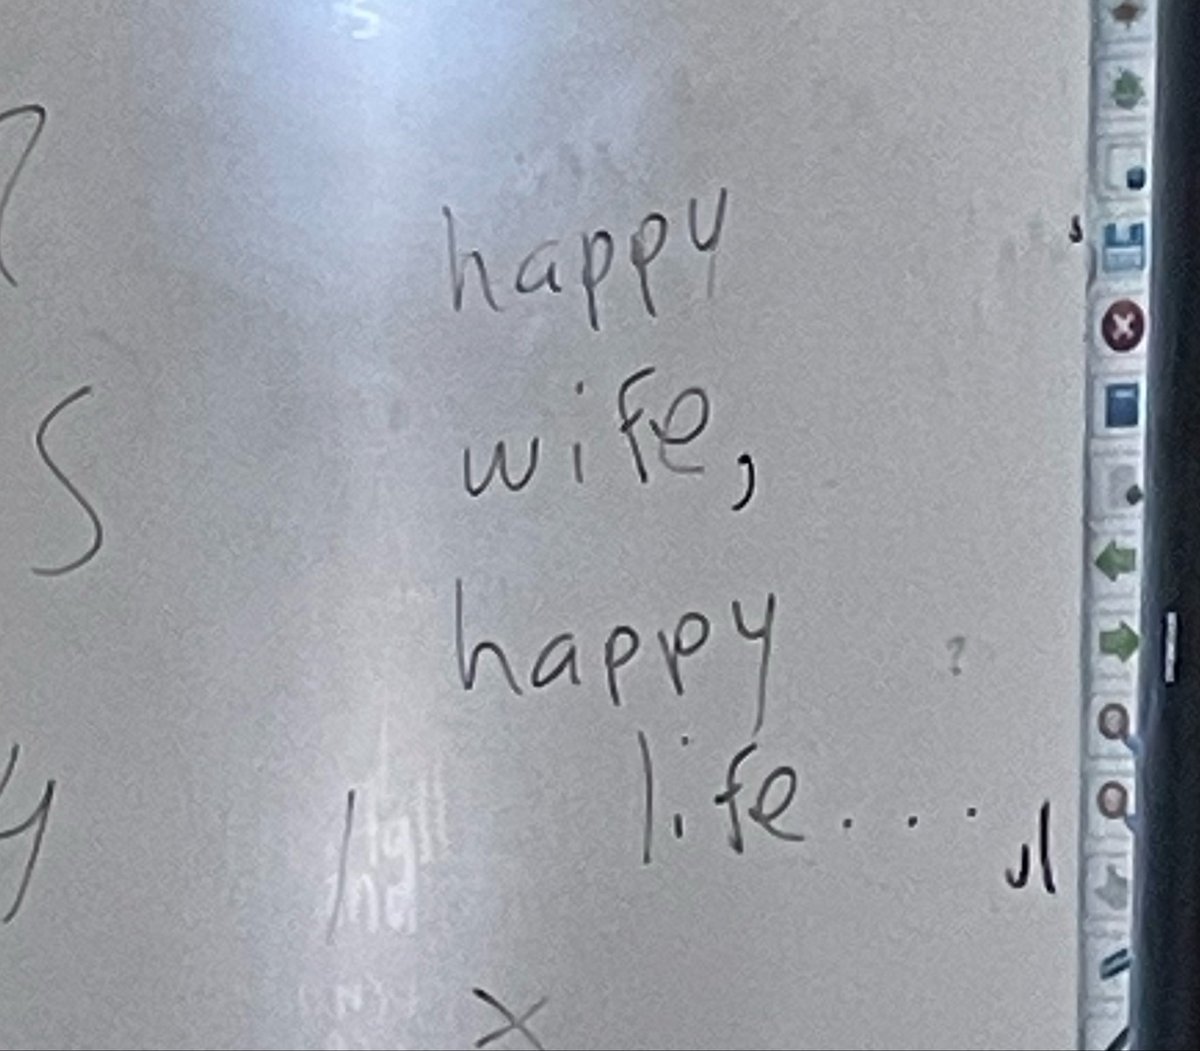 happy
wife,
happy
life....